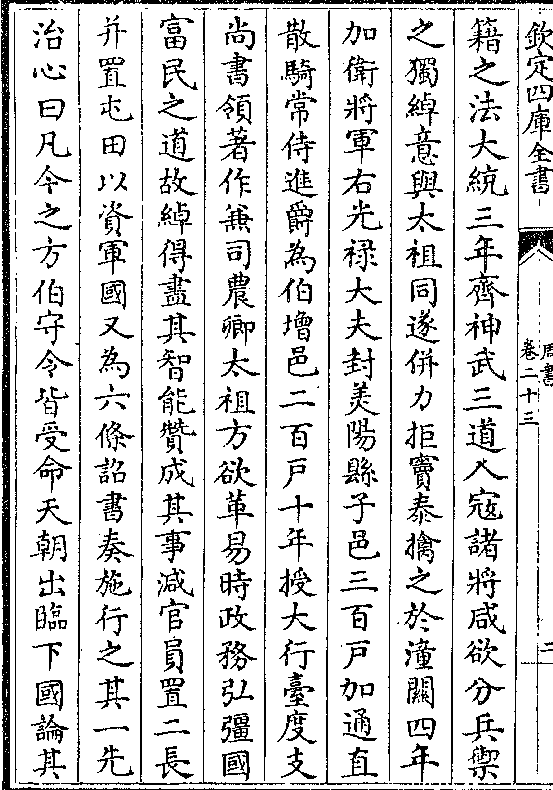 欽定四庫全書
周書
卷二十三
二
籍之法大統三年齊神武三道入寇諸將咸欲分兵禦
之獨綽意與太祖同遂併力拒竇泰擒之於潼關四年
加衛將軍右光祿大夫封美陽縣子邑三百戶加通直
散騎常侍進爵為伯增邑二百戶十年授大行臺度支
尚書領著作兼司農卿太祖方欲革易時政務弘彊國
富民之道故綽得盡其智能贊成其事減官員置二長
并置屯田以資軍國又為六條詔書奏施行之其一先
治心曰凡今之方伯守令皆受命天朝出臨下國論其